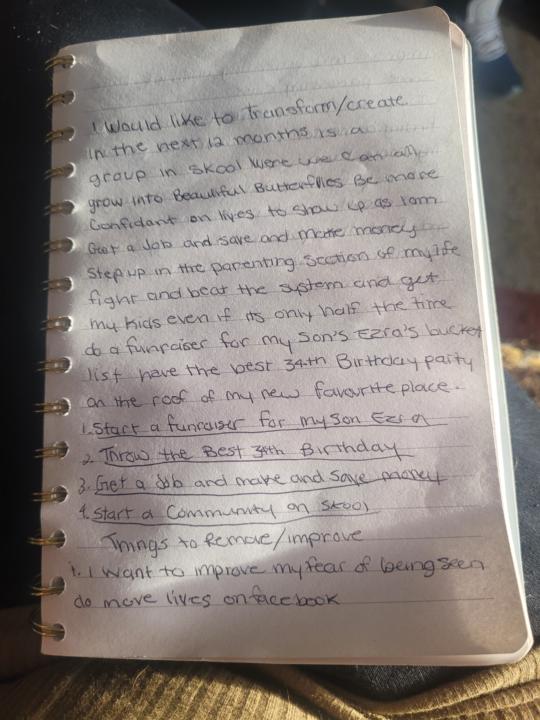 1. Would like to Transform/create
in the next 12 months is a
group in Skool were we can all
grow into Beautiful Butterflies Be more
Confidant on lives to show up as I am
Get a Job and save and make money
Step up in the parenting section of my life
fight and beat the system and get
my kids even if its only half the time
do a funraiser for my Son's Ezra's bucket
list have the best 34th Birthday party
on the roof of my new favourite place.
1. Start a funraiser for my son Ezra
2. Throw the Best 34th Birthday
3. Get a Job and make and save money
4. Start a Community on Skool
Things to Remove/improve
1. I want to improve my fear of being seen
do more lives on facebook